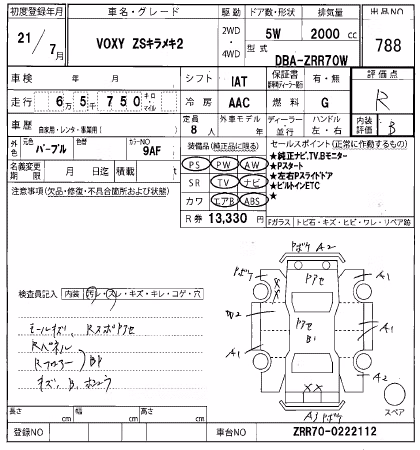 初度登録年月 車名・グレード 駆動 ドア数・形状 排気量 出品NO
21/7月 VOXY ZSキラメキ2 2WD・4WD 5W 2000 cc 788
型式 DBA-ZRR70W
車検 年 月 シフト IAT 保証書 有・無 評価点
走行 6万5千750 キロ・マイル 冷房 AAC 燃料 G R
車歴 自家用・レンタ・事業用( ) 定員 8人 外車モデル 年 ディーラー・並行 ハンドル 左・右 内装評価 B
外色 元色 パープル 色替 カラーNO 9AF 装備品(純正品に限る) セールスポイント(正常に作動するもの)
名義変更期限 月 日迄 積載 t PS PW AW ★純正ナビ.TV.Bモニター
注意事項(欠品・修復・不具合箇所および状態) SR TV ナビ ★Pスタート
★左右Pスライドドア
カワ エアB ABS ★ビルトインETC
★
R券 13,330円 Fガラス トビ石・キズ・ヒビ・ワレ・リペア跡
Pボケ A2
Pボケ Pアセ A1
検査員記入 内装 汚レ・スレ・キズ・キレ・コゲ・穴
W2 Pアセ A1
B1
Rパネル
Rフロアー BP
A1 A2
キズ、B、
XX
スペア
A3 Pボケ
長さ cm 幅 cm 高さ cm
登録NO 車台NO ZRR70-0222112